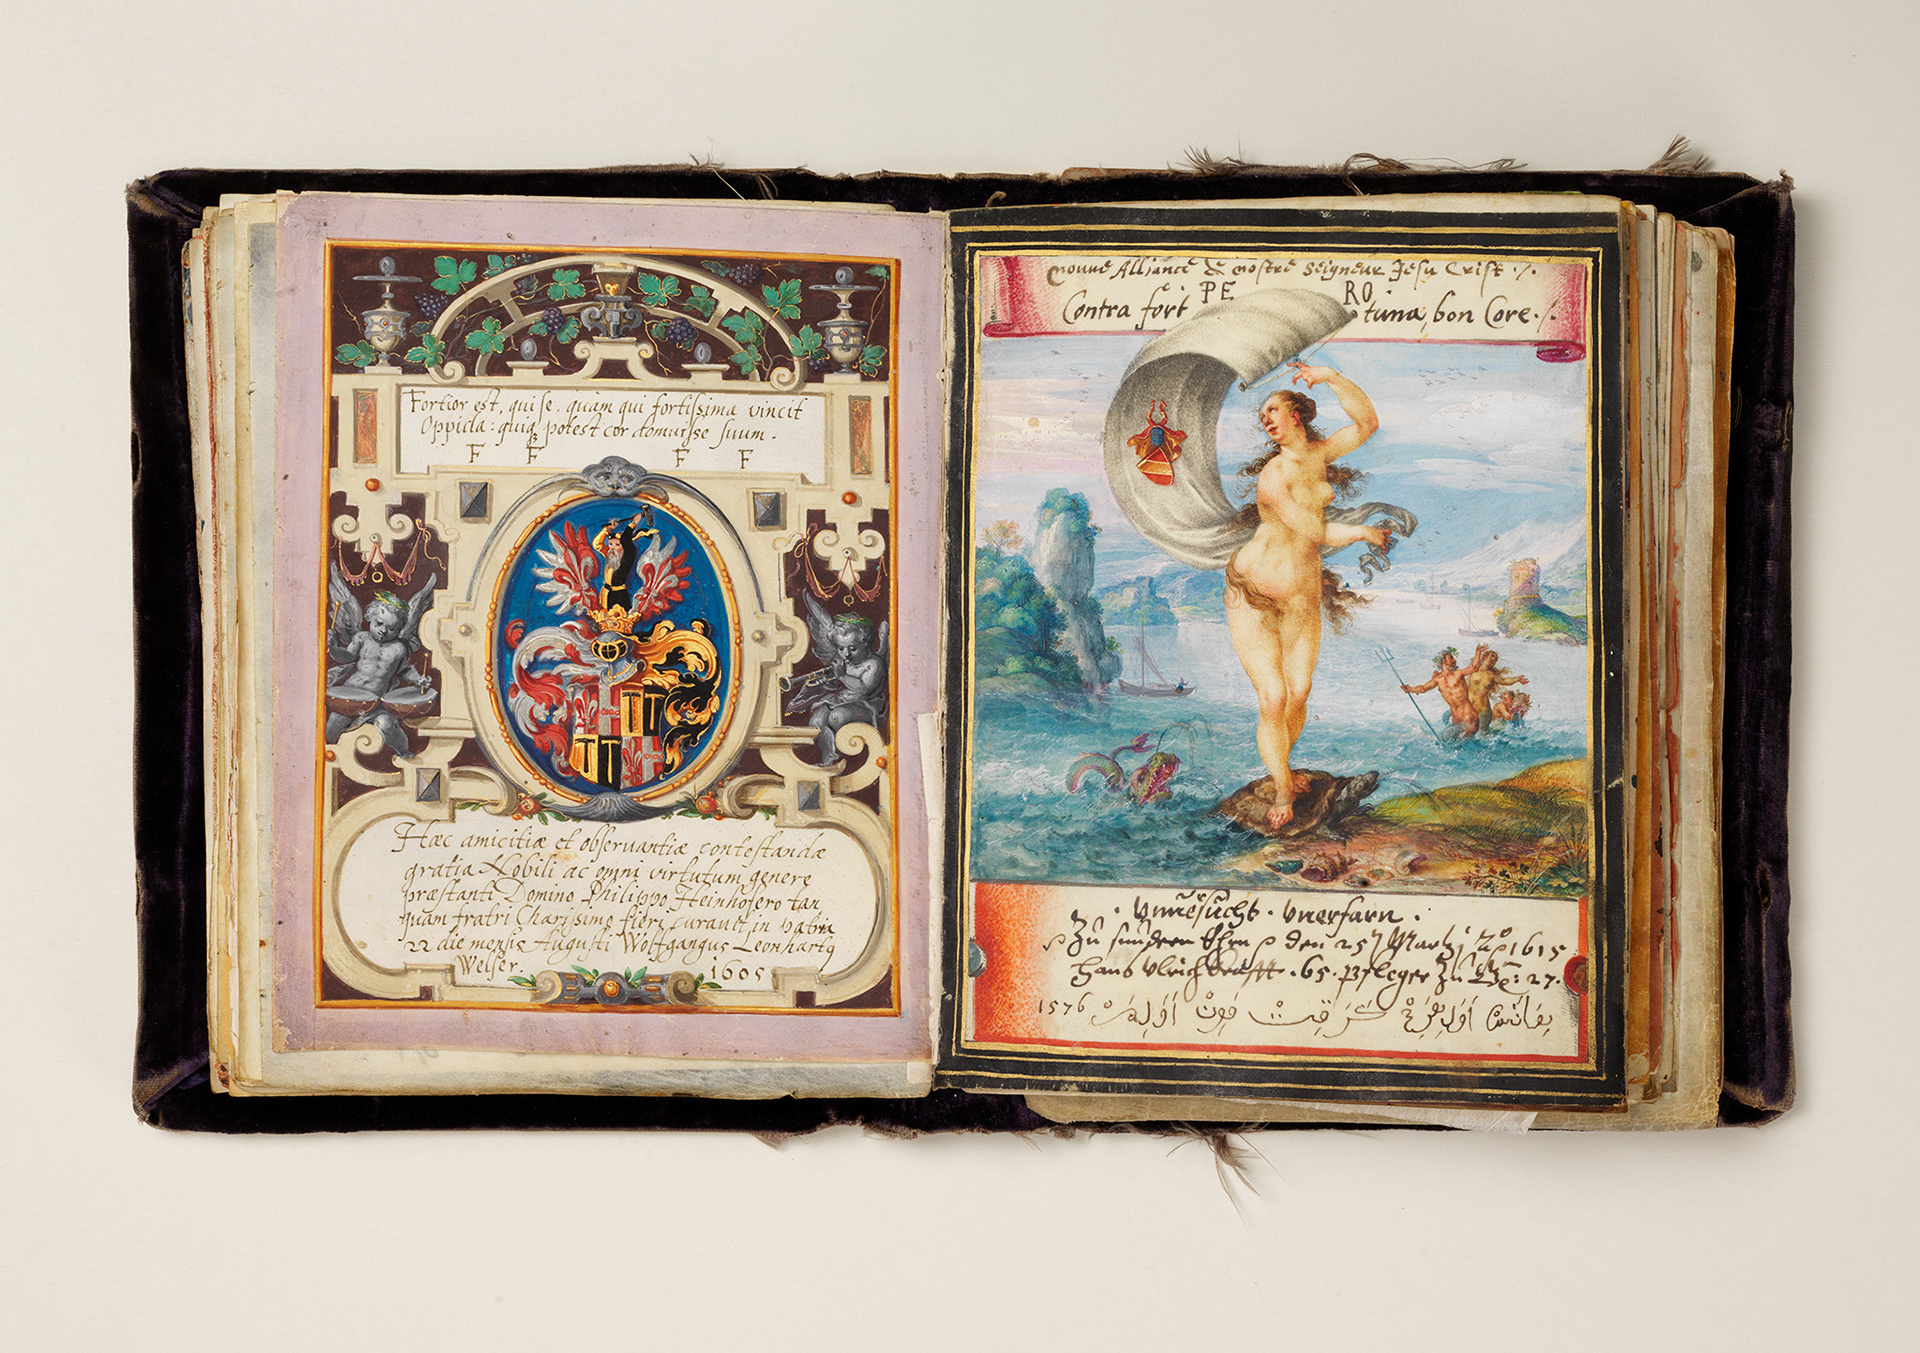 Fortior est, qui se, quàm qui fortissima vincit
Oppida: quiq₃ potest cor domuisse suum.
F F F F
Hæc amicitiæ et observantiæ contestandæ
gratia Nobili ac omni virtutum genere
præstanti Domino Philippo Heinhofero tan
quam fratri Charissimo fieri curavit in patria
22 die mensis Augusti Wolffgangus Leonhartꝰ
Welser. 1605
nouue Alliance de nostre Seigneur Jesu Crist ·/.
PE RO
Contra fort tuna, bon Core ·/.
· Unuersucht · Unerfarn ·
Zu sundern Ehrn den 25 Martzi Aº 1615
Hans Ulrich Krafft · 65 · Pfleger Zu 27.
1576